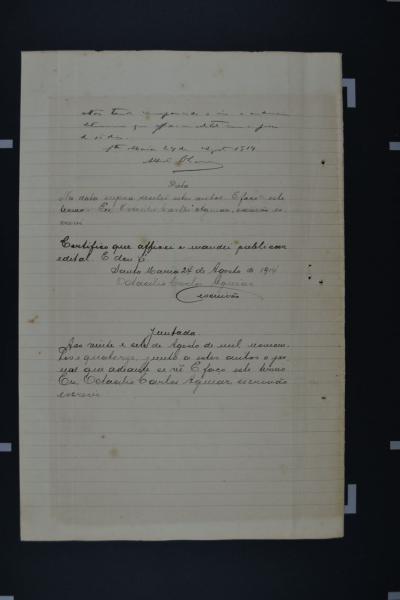 Não tendo comparecido o réo
Sta Maria 24 de Agost 1914
Data
Na data supra recebi estes autos. E faço este
termo. Eu, Octacilio Carlos Aguiar, escrivão es-
crevi
Certifico que affixei e mandei publicar
edital. E dou fé
Santa Maria 24 de Agosto de 1914
Octacilio Carlos Aguiar
escrivão
Juntada
Aos vinte e sete de Agosto de mil novecen-
tos e quatorze, junto a estes autos o jor-
nal que adiante se vê. E faço este termo
Eu, Octacilio Carlos Aguiar escrivão
escrevi